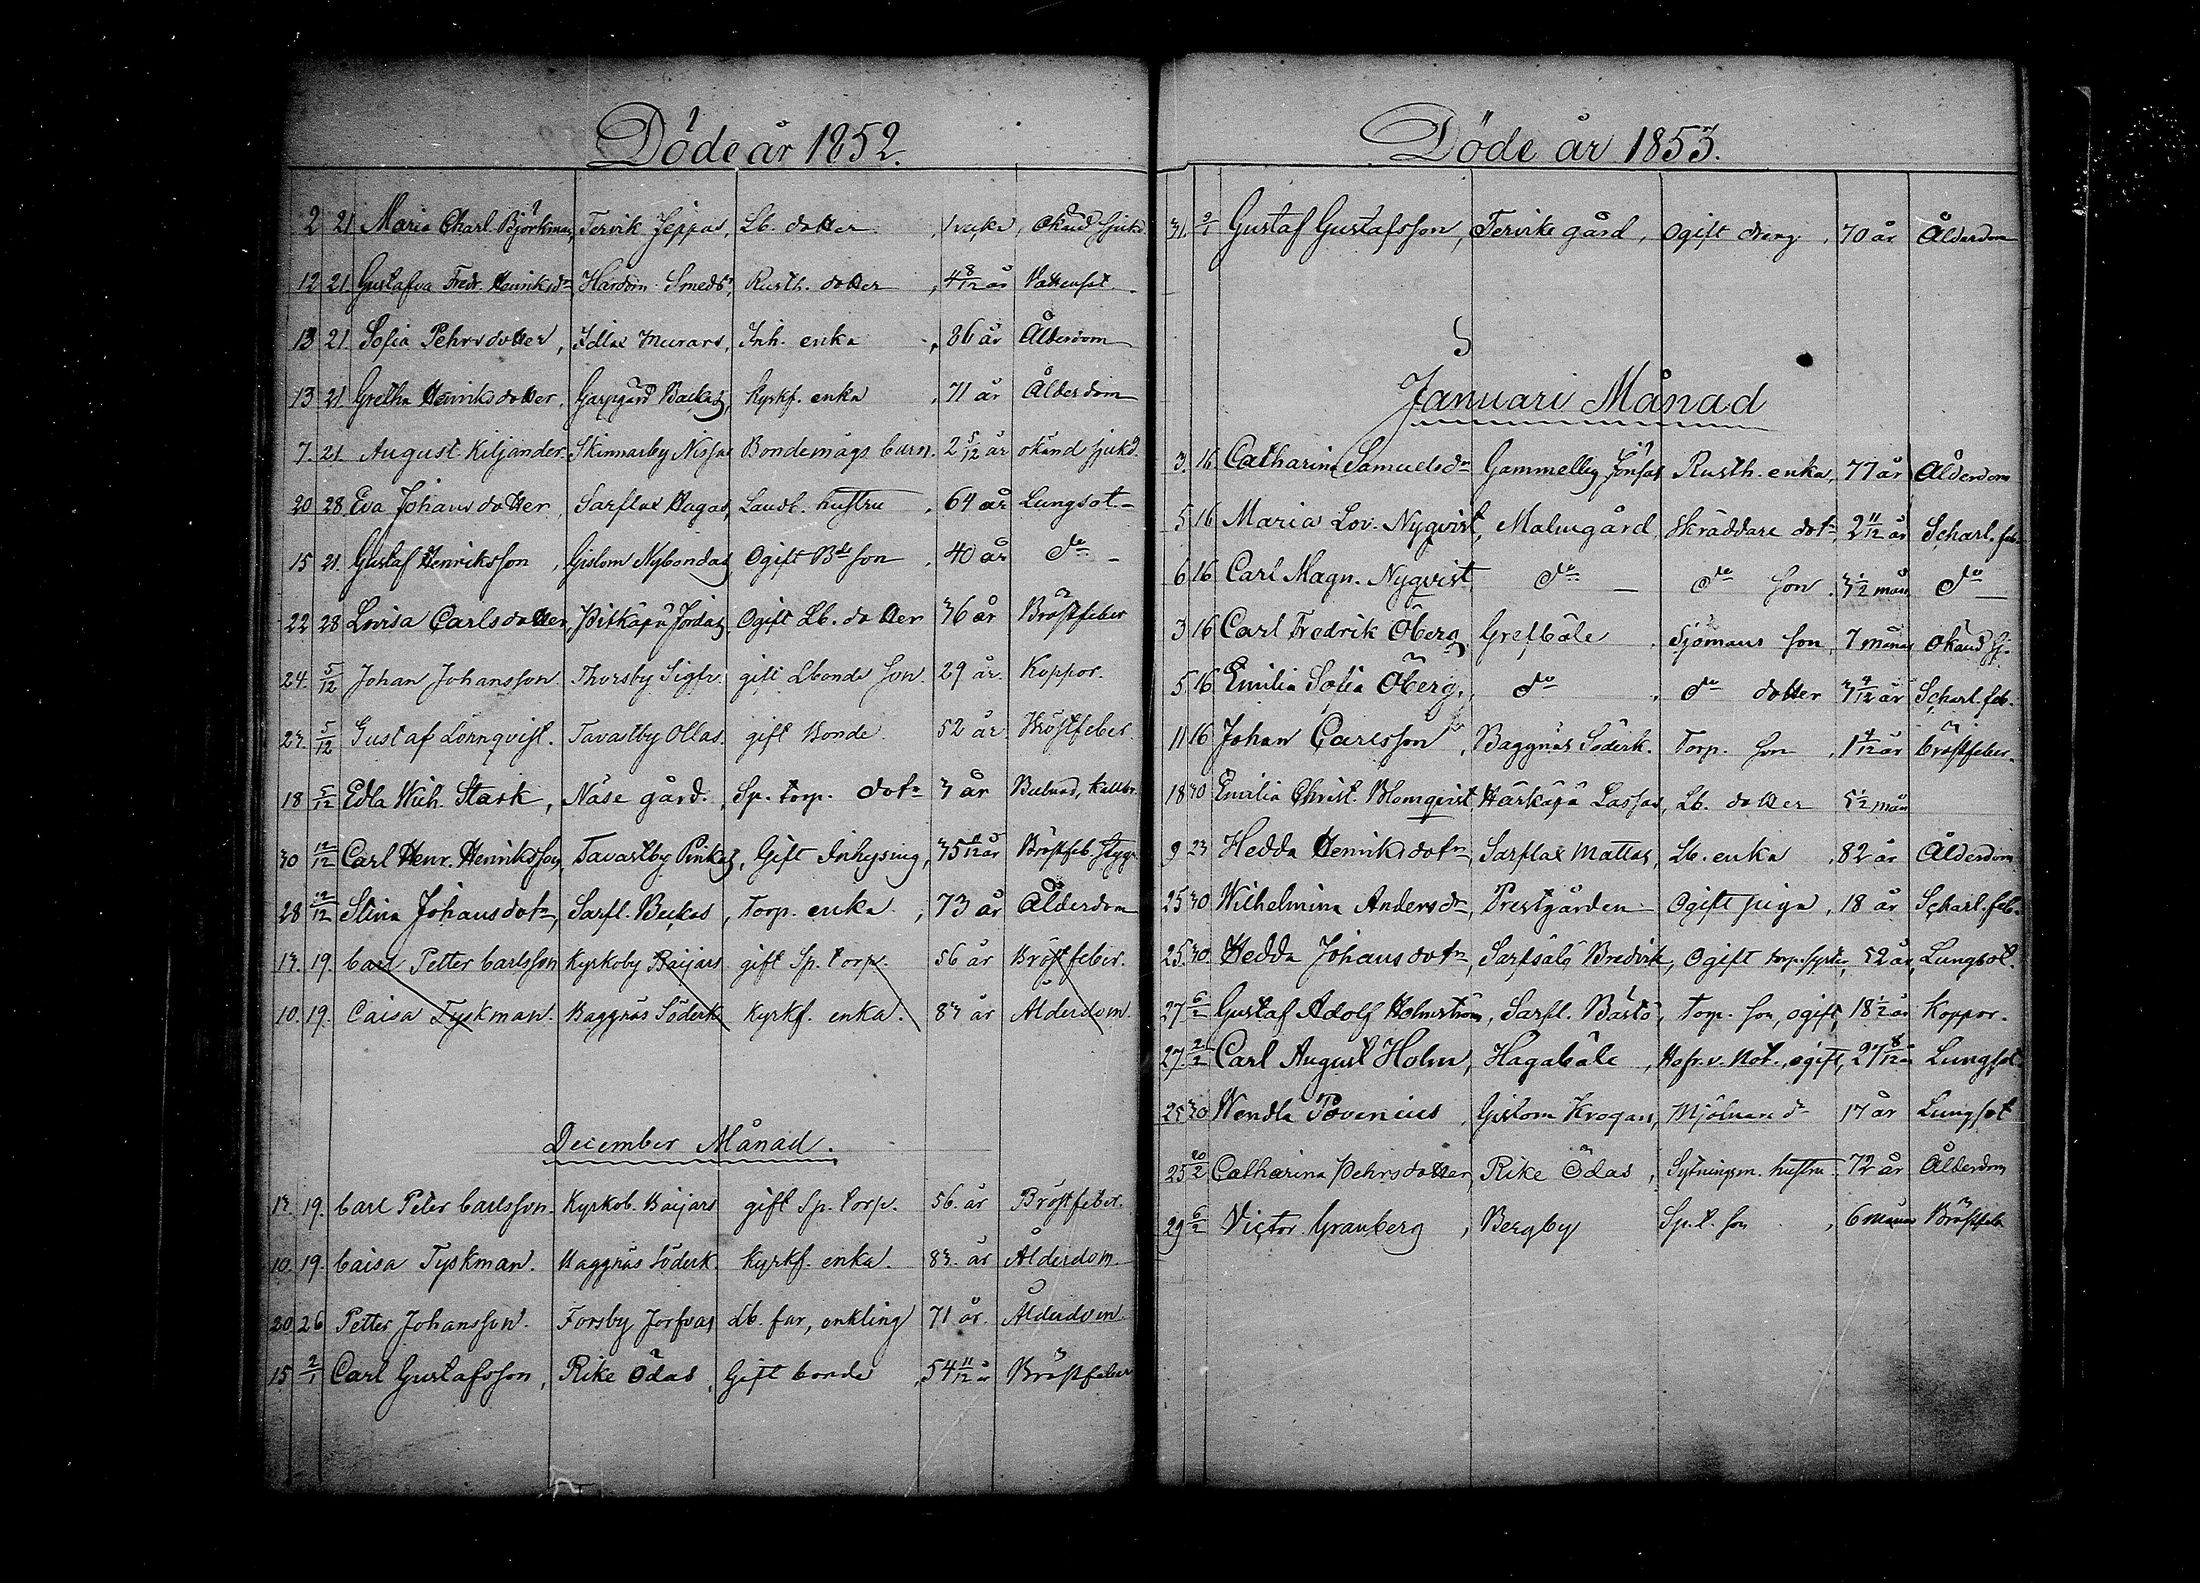 Döde år 1852.
2 21 Maria Charl. Björkman, Tervik Jeppas, Lb. dotter, 1 vecka, Okänd sjukd.
12 21 Gustafva Fredr. Henriksdr Hardom Smeds, Rusth. dotter, 4 8/12 år Vattusot
13 21. Sofia Pehrsdotter, Idlax Murars, Inh. enka, 86 år Ålderdom
13 21. Gretha Henriksdotter, Garpgård Backas, Kyrkf. enka, 71 år Ålderdom
7. 21. August Kiljander. Skinnarby Nissas Bondemågs barn. 2 5/12 år okänd sjukd.
20 28 Eva Johansdotter, Sarflax Hagas, Landb. hustru, 64 år Lungsot
15 21. Gustaf Henriksson, Gislom Nybondas, Ogift Bde son, 40 år do
22 28 Lovisa Carlsdotter, Pitkäpä Jordas, Ogift Lb. dotter 36 år Bröstfeber
24. 5/12 Johan Johansson Thorsby Sigfr. gift Lbonde son 29 år. Koppor.
27. 5/12 Gustaf Lönnqvist. Tavastby Ollas. gift Bonde. 52 år Bröstfeber.
18 5/12 Edla Wilh. Stark, Näse gård. Sp. torp. dotr 3 år Bulnad, kallbr.
30 12/12 Carl Henr. Henriksson, Tavastby Pinkas, Gift Inhysing, 35 5/12 år Bröstfeb. stygn
28 12/12 Stina Johansdotr, Sarfl. Beckas, Torp. enka, 73 år Ålderdom
17. 19. Carl Petter Carlsson Kyrkoby Baijars gift Sp. torp. 56 år Bröstfeber.
10. 19. Caisa Tyskman. Baggnäs Söderk. Kyrkf. enka. 83 år Ålderdom.
December Månad.
17. 19. Carl Peter Carlsson. Kyrkob. Baijars gift Sp. torp. 56. år Bröstfeber.
10. 19. Caisa Tyskman. Baggnäs Söderk. Kyrkf. enka. 83. år Ålderdom.
20 26 Petter Johansson. Forsby Jorfvas Lb. far, enkling 71 år. Ålderdom.
15 2/1 Carl Gustafsson, Rike Ödas, Gift bonde, 54 11/12 år Bröstfeber
Döde år 1853.
31. 9/1 Gustaf Gustafsson, Tervike gård, Ogift dreng, 70 år Ålderdom
Januari Månad
3. 16 Catharina Samuelsdr Gammelby Jönsas Rusth. enka, 77 år Ålderdom
5 16 Maria Lov. Nyqvist, Malmgård, Skräddare dotr, 2 11/12 år Scharl. feb.
6 16 Carl Magn. Nyqvist do do son, 3 1/2 mån do
3 16 Carl Fredrik Öberg, Grefbäle, Sjömans son, 7 månar Okänd sj.
5 16 Emilia Sofia Öberg, do, do dotter 3 4/12 år Scharl. feb.
11 16 Johan Carlsson, Baggnäs Söderk. Torp. son, 1 4/12 år bröstfeber.
18 30 Emilia Christ. Blomqvist Härkäpä Lassas, Lb. dotter 5 1/2 mån
9 23 Hedda Henriksdotr, Sarflax Mattas, Lb. enka, 82 år Ålderdom
25 30 Wilhelmina Andersdr, Prestgården Ogift piga, 18 år Scharl. feb.
25. 30. Hedda Johansdotr, Sarfsalö Bredvik, Ogift torp. syster, 52 år, Lungsot.
27 6/2 Gustaf Adolf Holmström, Sarfl. Bastö, Torp. son, ogift, 18 1/2 år Koppor.
27. 2/2 Carl August Holm, Hagaböle, Hofr. v. Not., ogift, 27 8/12 år Lungsot
25 30 Wendla Povenius, Gislom Krogars, Mjölnare dr 17 år Lungsot
25 20/2 Catharina Pehrsdotter, Rike Ödas, Sytningsm. hustru 72 år Ålderdom
29 6/2 Victor Granberg, Bergby Sp.t. son, 6 månar Bröstfeb